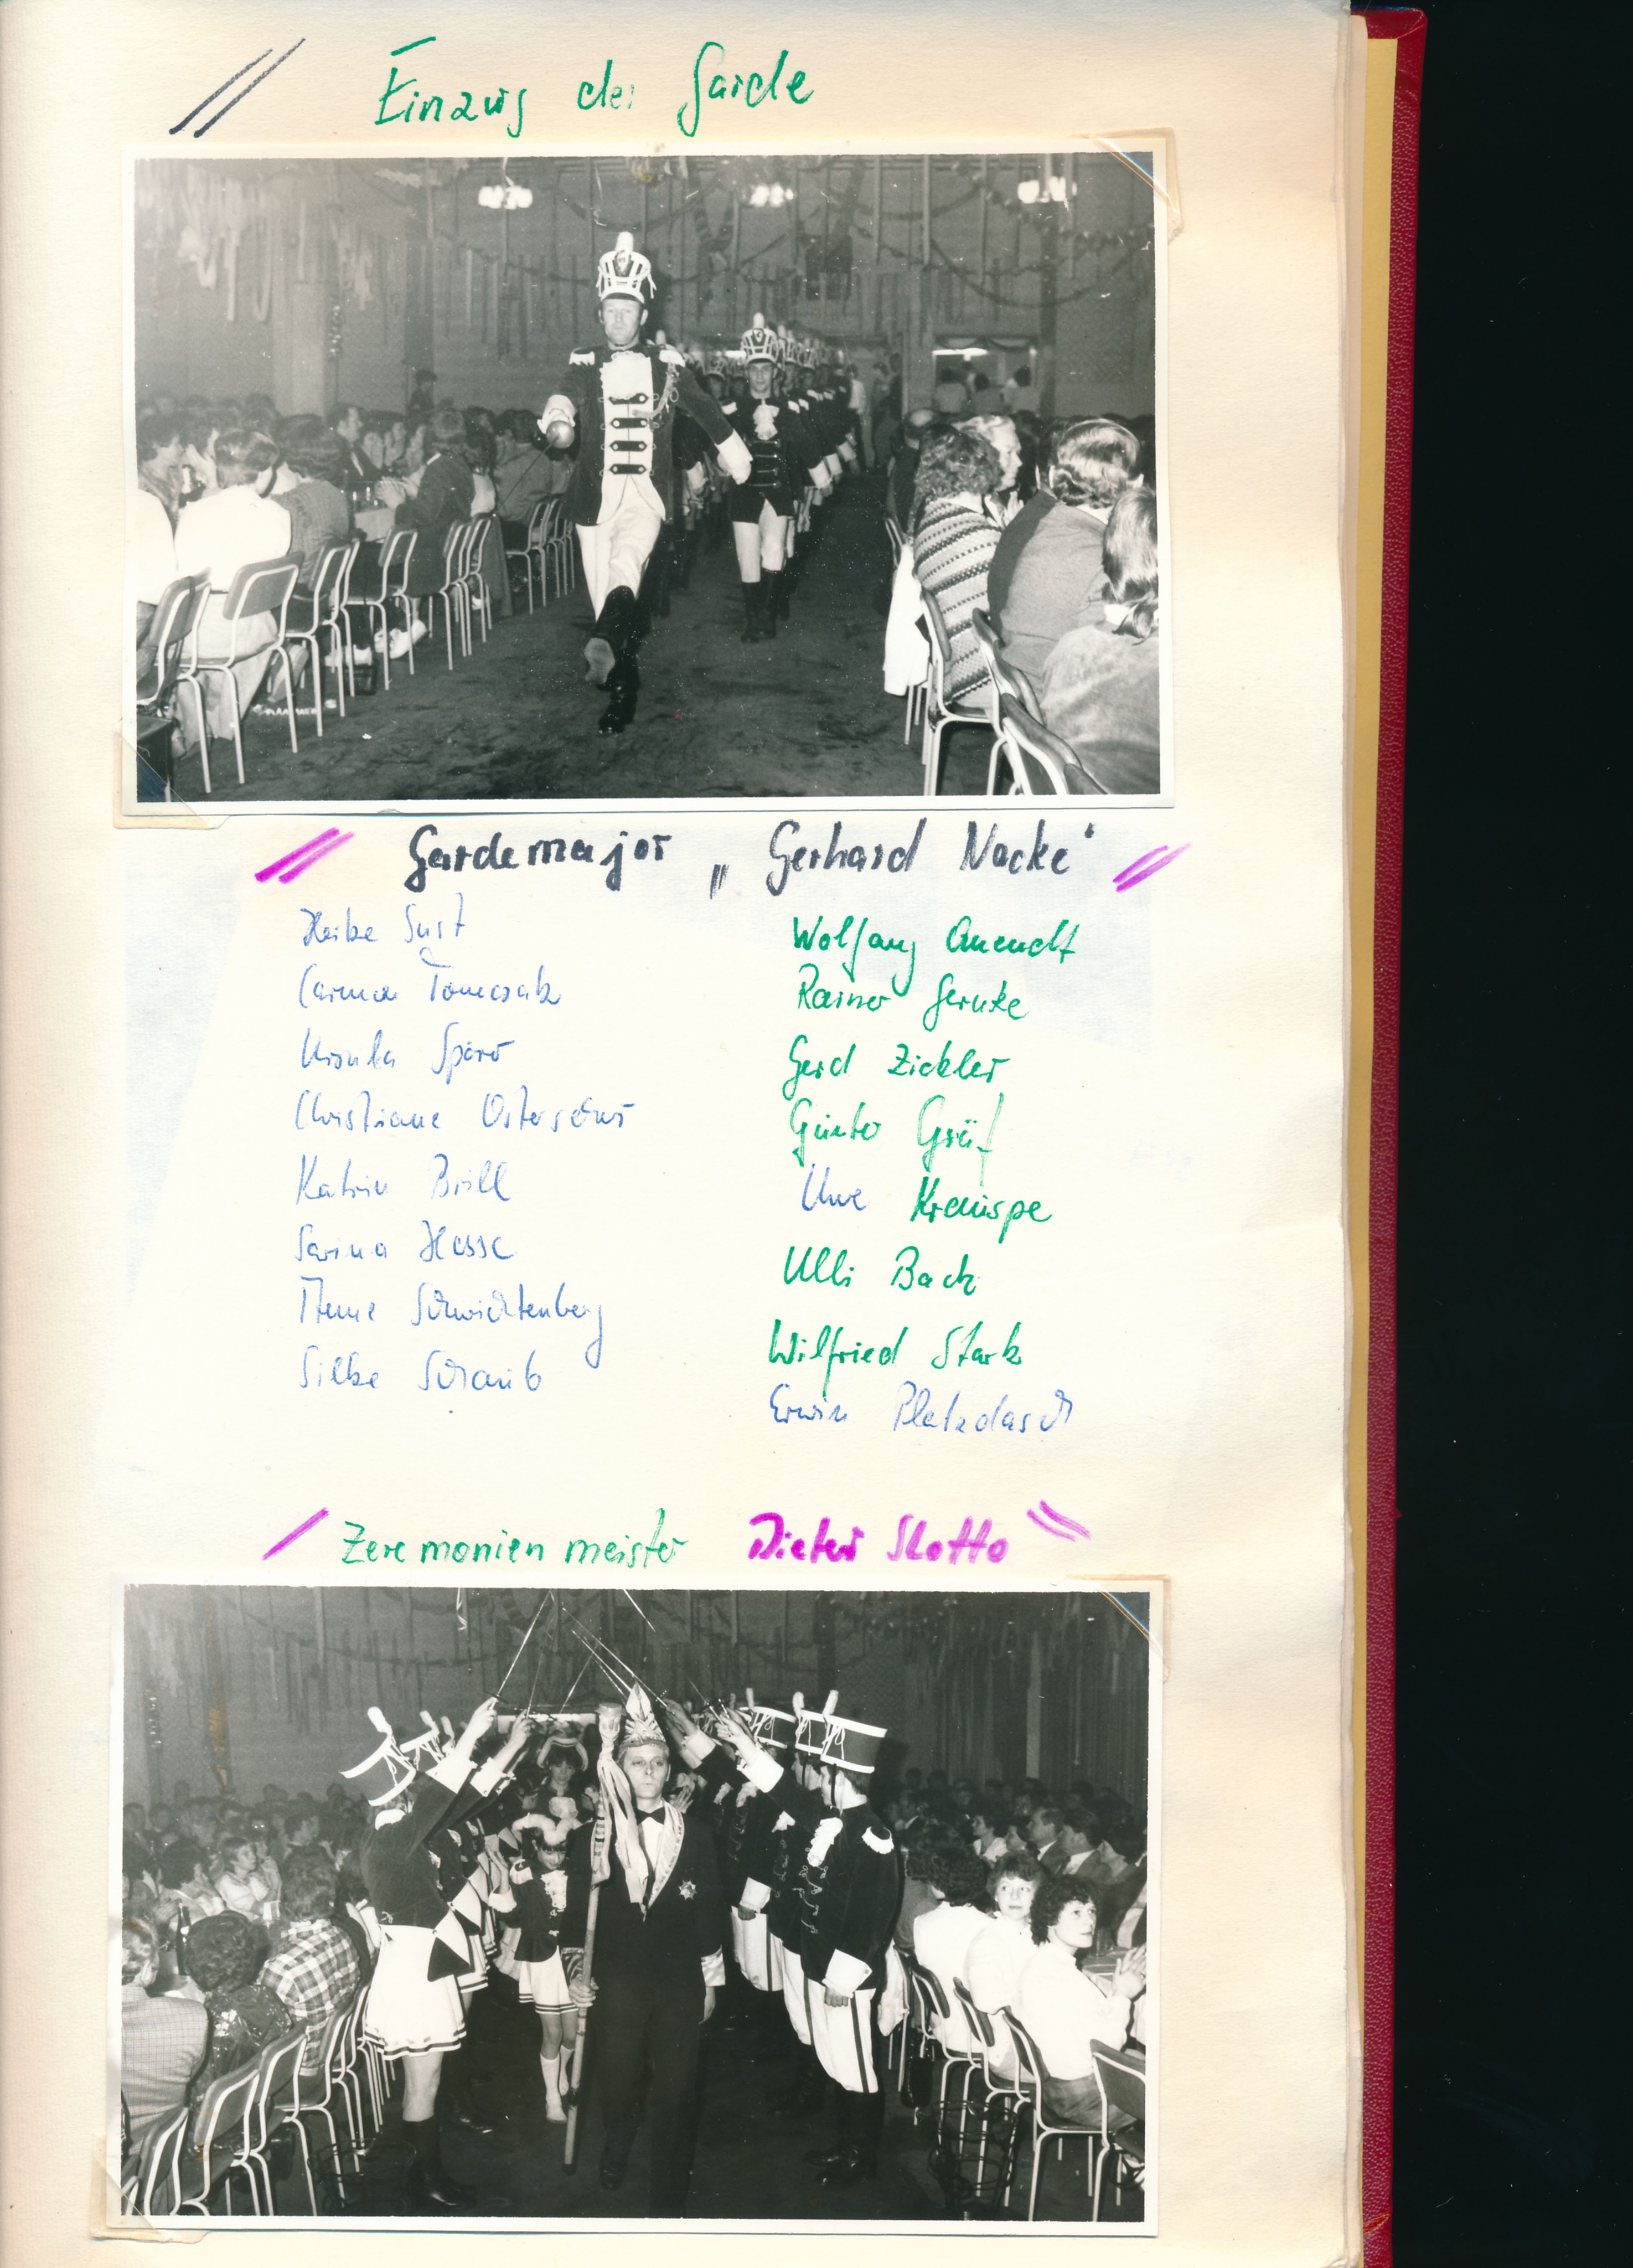 Einzug der Garde
Gardemajor „Gerhard Nacke“
Heike Sust
Carmen Tomczak
Ursula
Christiane
Katrin Brill
Sarina Hesse
Schwichtenberg
Silke Schaub
Wolfgang
Rainer Gernke
Gerd Zickler
Günter Gräf
Uwe Krauspe
Ulli Back
Wilfried Stark
Erwin Platzdasch
Zeremonienmeister Dieter Slotto